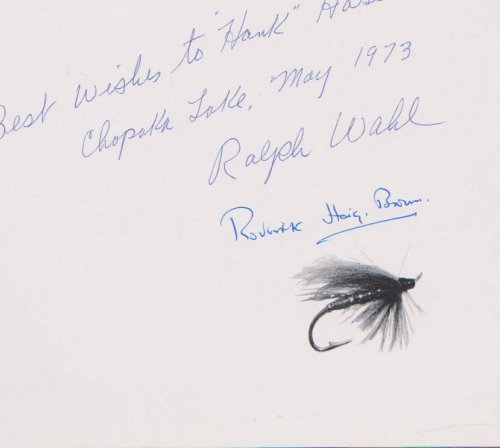 Best Wishes to "Hank"
Chopaka Lake, May 1973
Ralph Wahl
Roderick Haig-Brown.